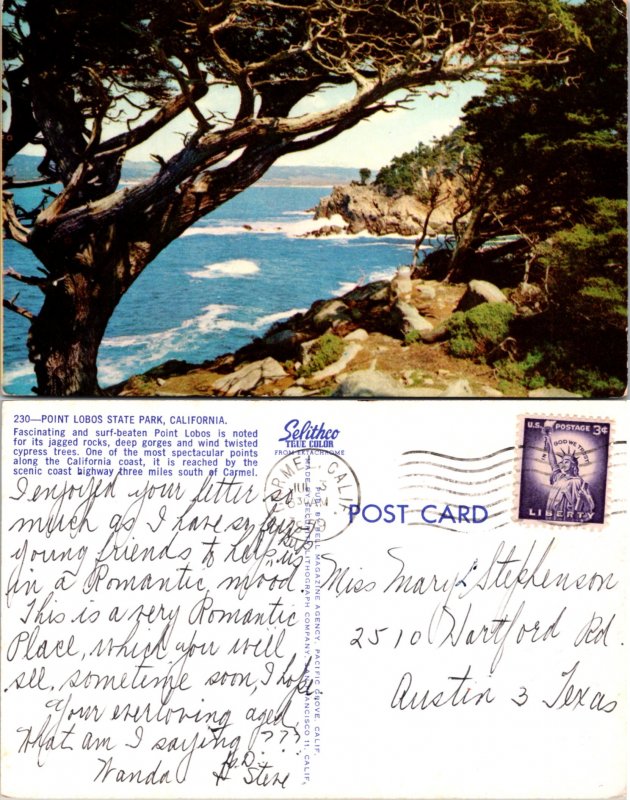 230—POINT LOBOS STATE PARK, CALIFORNIA.
Fascinating and surf-beaten Point Lobos is noted
for its jagged rocks, deep gorges and wind twisted
cypress trees. One of the most spectacular points
along the California coast, it is reached by the
scenic coast highway three miles south of Carmel.
Selithco
TRUE COLOR
FROM EKTACHROME
PUB. BY BELL MAGAZINE AGENCY, PACIFIC GROVE, CALIF.
MADE BY SECURITY LITHOGRAPH COMPANY, SAN FRANCISCO 11, CALIF.
CALIF.
POST CARD
U.S. POSTAGE 3¢
IN GOD WE TRUST
LIBERTY
I enjoyed your letter so
much as I have so few
young friends to help us
in a Romantic mood.
This is a very Romantic
Place, which you will
see, sometime soon, I hope.
Your everloving aged,
What am I saying???
Wanda
& Steve
Miss Mary Stephenson
2510 Hartford Rd.
Austin 3 Texas